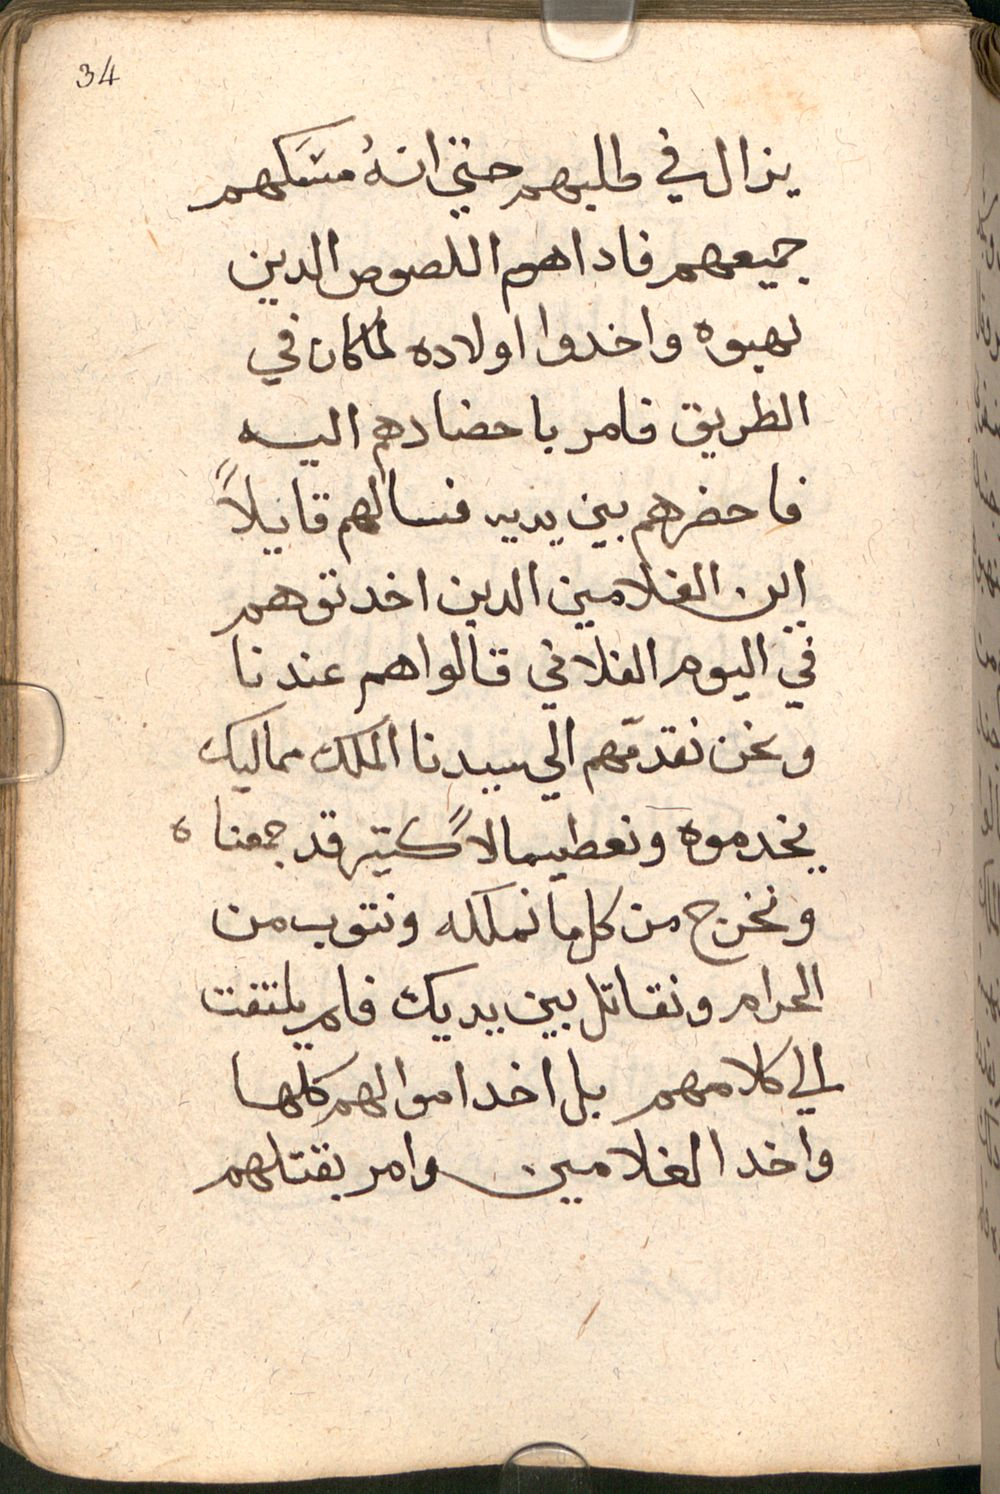 34
يزال في طلبهم حتي انهُ مسَكهم
جميعهم فاداهم اللصوص الدين
نهبوه واخدوا اولاده لما كان في
الطريق فامر باحضارهم اليه
فاحضرهم بين يديه فسالهم قايلاً
اين الغلامين الدين اخدتوهم
في اليوم الفلاني قالوا هم عندنا
ونحن نقدمّهم الي سيدنا الملك مماليك
يخدموه ونعطيه مالاً كتير قد جمعناه
ونخرج من كل ما نملكه ونتوب من
الحرام ونقاتل بين يديك فلم يلتفت
الي كلامهم بل اخد اموالهم كلها
واخد الغلامين وامر بقتلهم